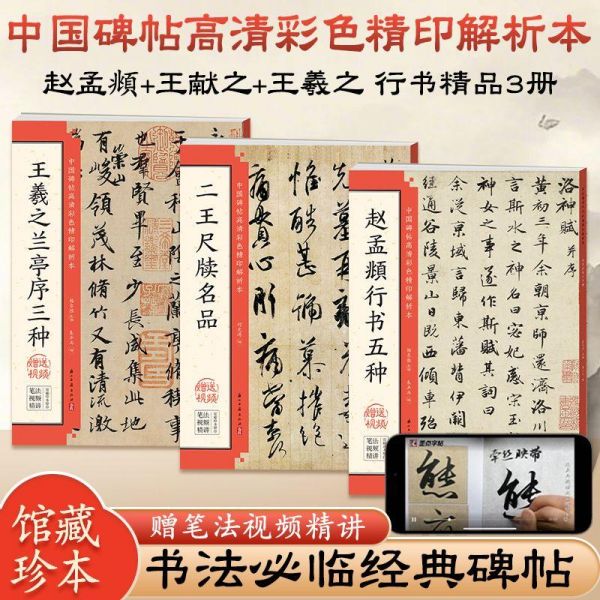 中国碑帖高清彩色精印解析本
赵孟頫+王献之+王羲之 行书精品3册
王羲之兰亭序三种
中国碑帖高清彩色精印解析本
赠送视频
笔法视频精讲
也群賢畢至少長咸集此地
有崇山
峻領茂林脩竹又有清流激
二王尺牍名品
中国碑帖高清彩色精印解析本
赠送视频
笔法视频精讲
赵孟頫行书五种
中国碑帖高清彩色精印解析本
赠送视频
笔法视频精讲
洛神賦 并序
黄初三年余朝京師還濟洛川
言斯水之神名曰宓妃感宋玉
神女之事遂作斯賦其詞曰
余從京域言歸東藩背伊闕
經通谷陵景山日既西傾車殆
墨点字帖
牵丝映带
熊
能
馆藏珍本
赠笔法视频精讲
书法必临经典碑帖